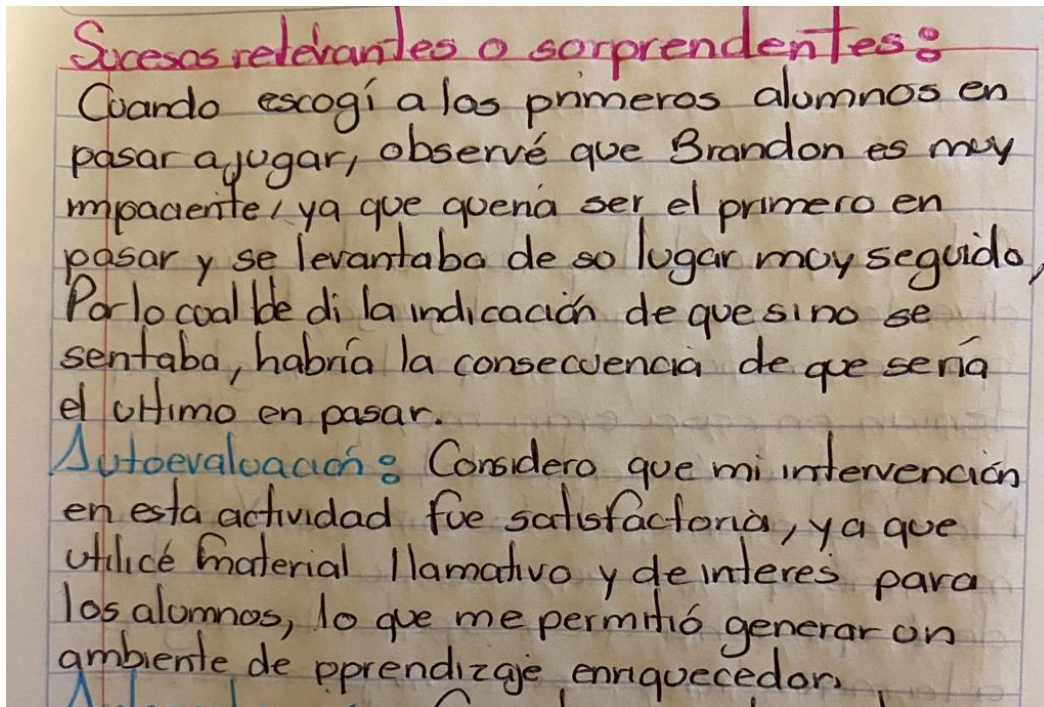 Sucesos relevantes o sorprendentes:
Cuando escogí a los primeros alumnos en
pasar a jugar, observé que Brandon es muy
impaciente, ya que quería ser el primero en
pasar y se levantaba de su lugar muy seguido,
Por lo cual le di la indicación de que si no se
sentaba, habría la consecuencia de que sería
el ultimo en pasar.
Autoevaluación: Considero que mi intervención
en esta actividad fue satisfactoria, ya que
utilicé material llamativo y de interes para
los alumnos, lo que me permitió generar un
ambiente de pprendizaje enriquecedor.